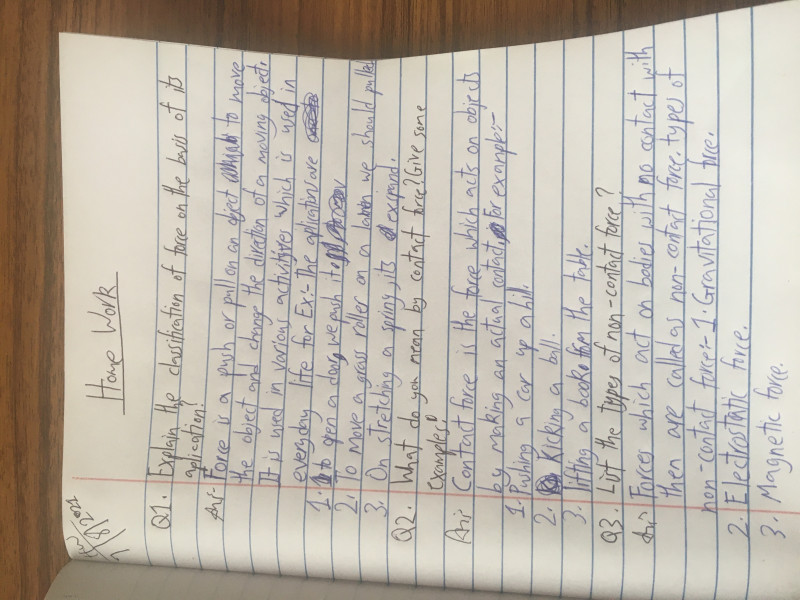 Home Work
Q1. Explain the classification of force on the basis of its
aplication?
Ans- Force is a push or pull on an object to move
the object and change the direction of a moving object.
It is used in various activities which is used in
everyday life for Ex:- the aplication are
1. to open a door, we push it
2. To move a grass roller on a lawn we should pulled
3. On stretching a spring, its expand.
Q2. What do you mean by contact force? Give some
Examples?
Ans Contact force is the force which acts on objects
by making an actual contact, For example:-
1. Pushing a car up a hill.
2. Kicking a ball.
3. Lifting a book from the table.
Q3. List the types of non-contact force?
Ans Forces which act on bodies with no contact with
them are called as non-contact force. types of
non-contact force:- 1. Gravitational force.
2. Electrostatic force.
3. Magnetic force.